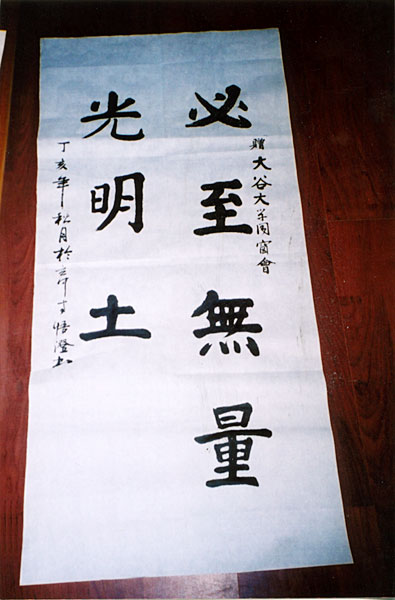 贈大谷大学同窗會
必至無量
光明土
丁亥年松月於寺悟澄书